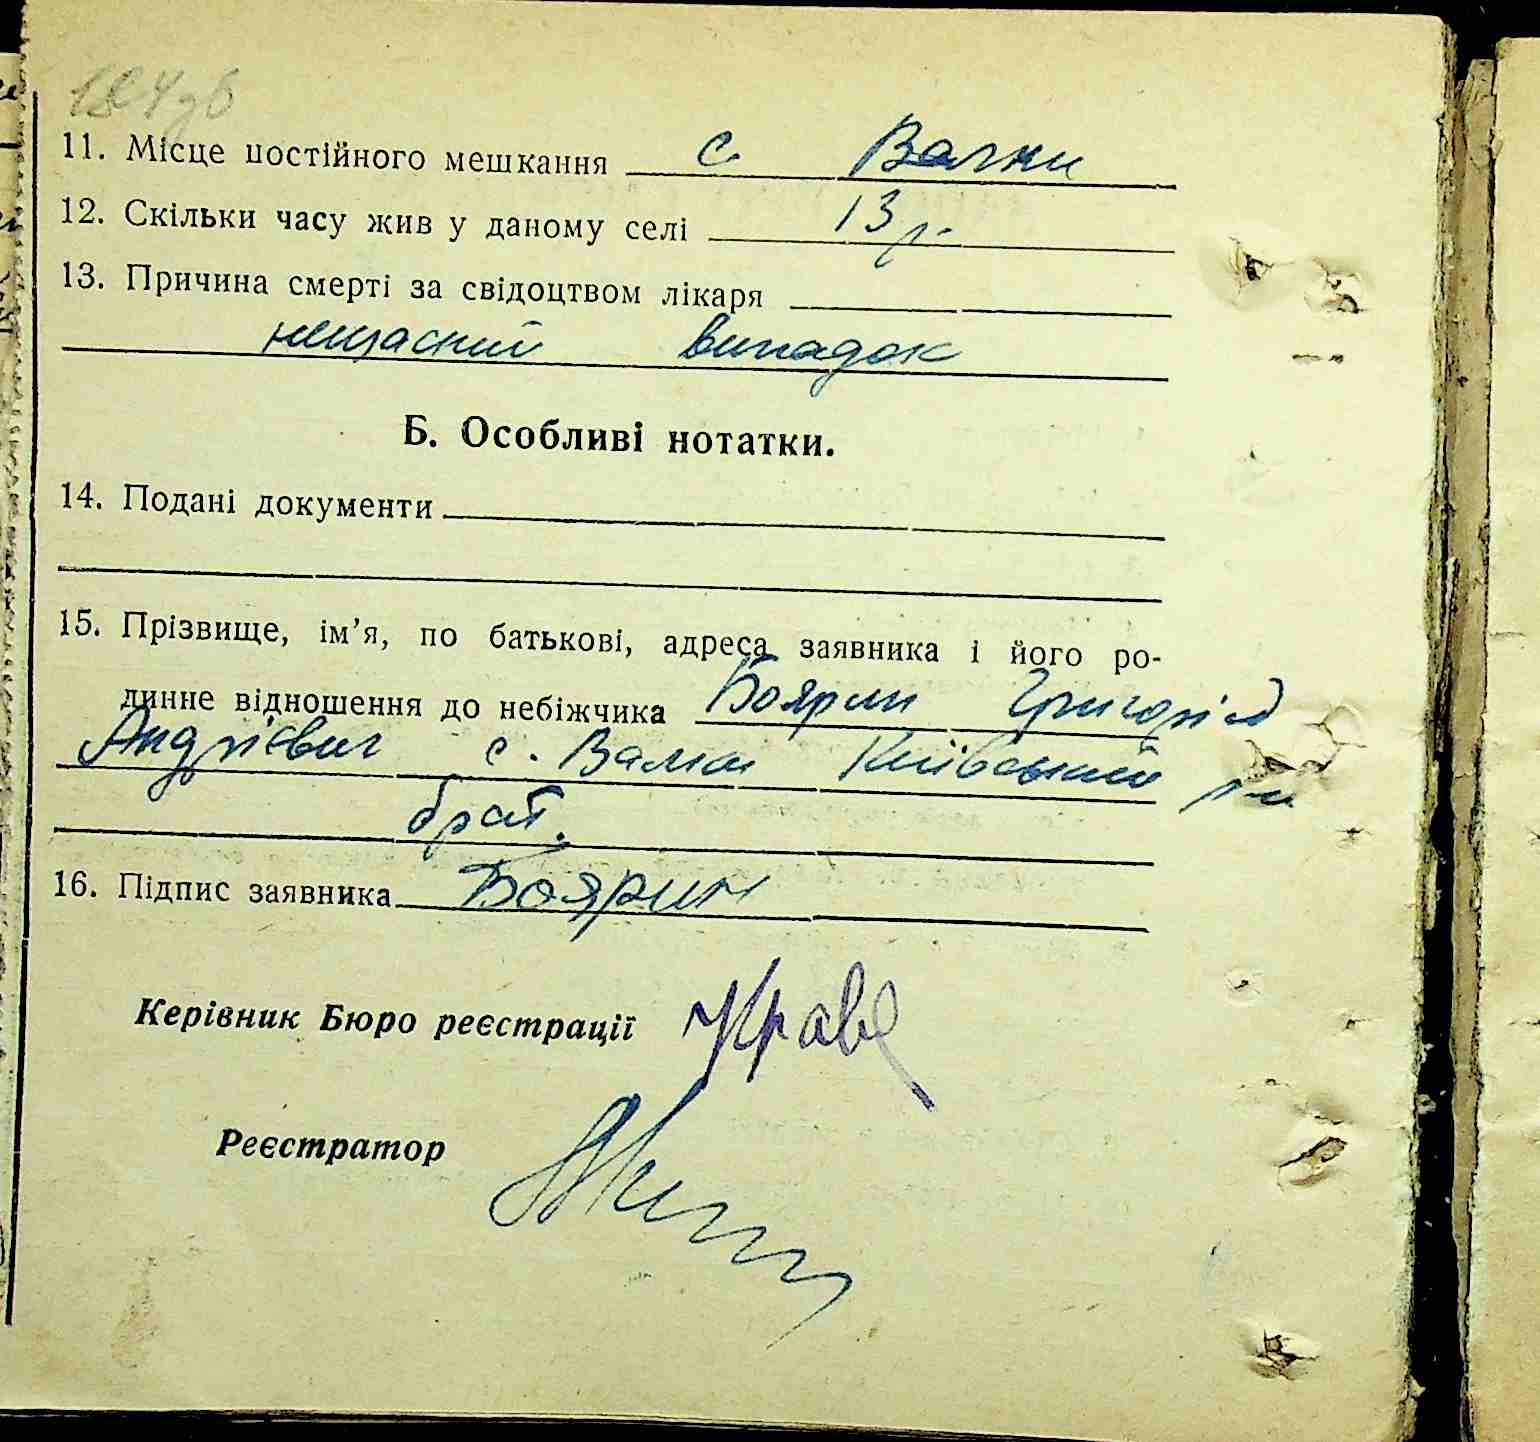 184зв
11. Місце постійного мешкання с. Валки
12. Скільки часу жив у даному селі 13 р.
13. Причина смерті за свідоцтвом лікаря
нещасний випадок
Б. Особливі нотатки.
14. Подані документи
15. Прізвище, ім’я, по батькові, адреса заявника і його ро-
динне відношення до небіжчика Боярин Григорій
Андрієвич с. Валки Київський р-н
брат.
16. Підпис заявника Боярин
Керівник Бюро реєстрації Краве
Реєстратор